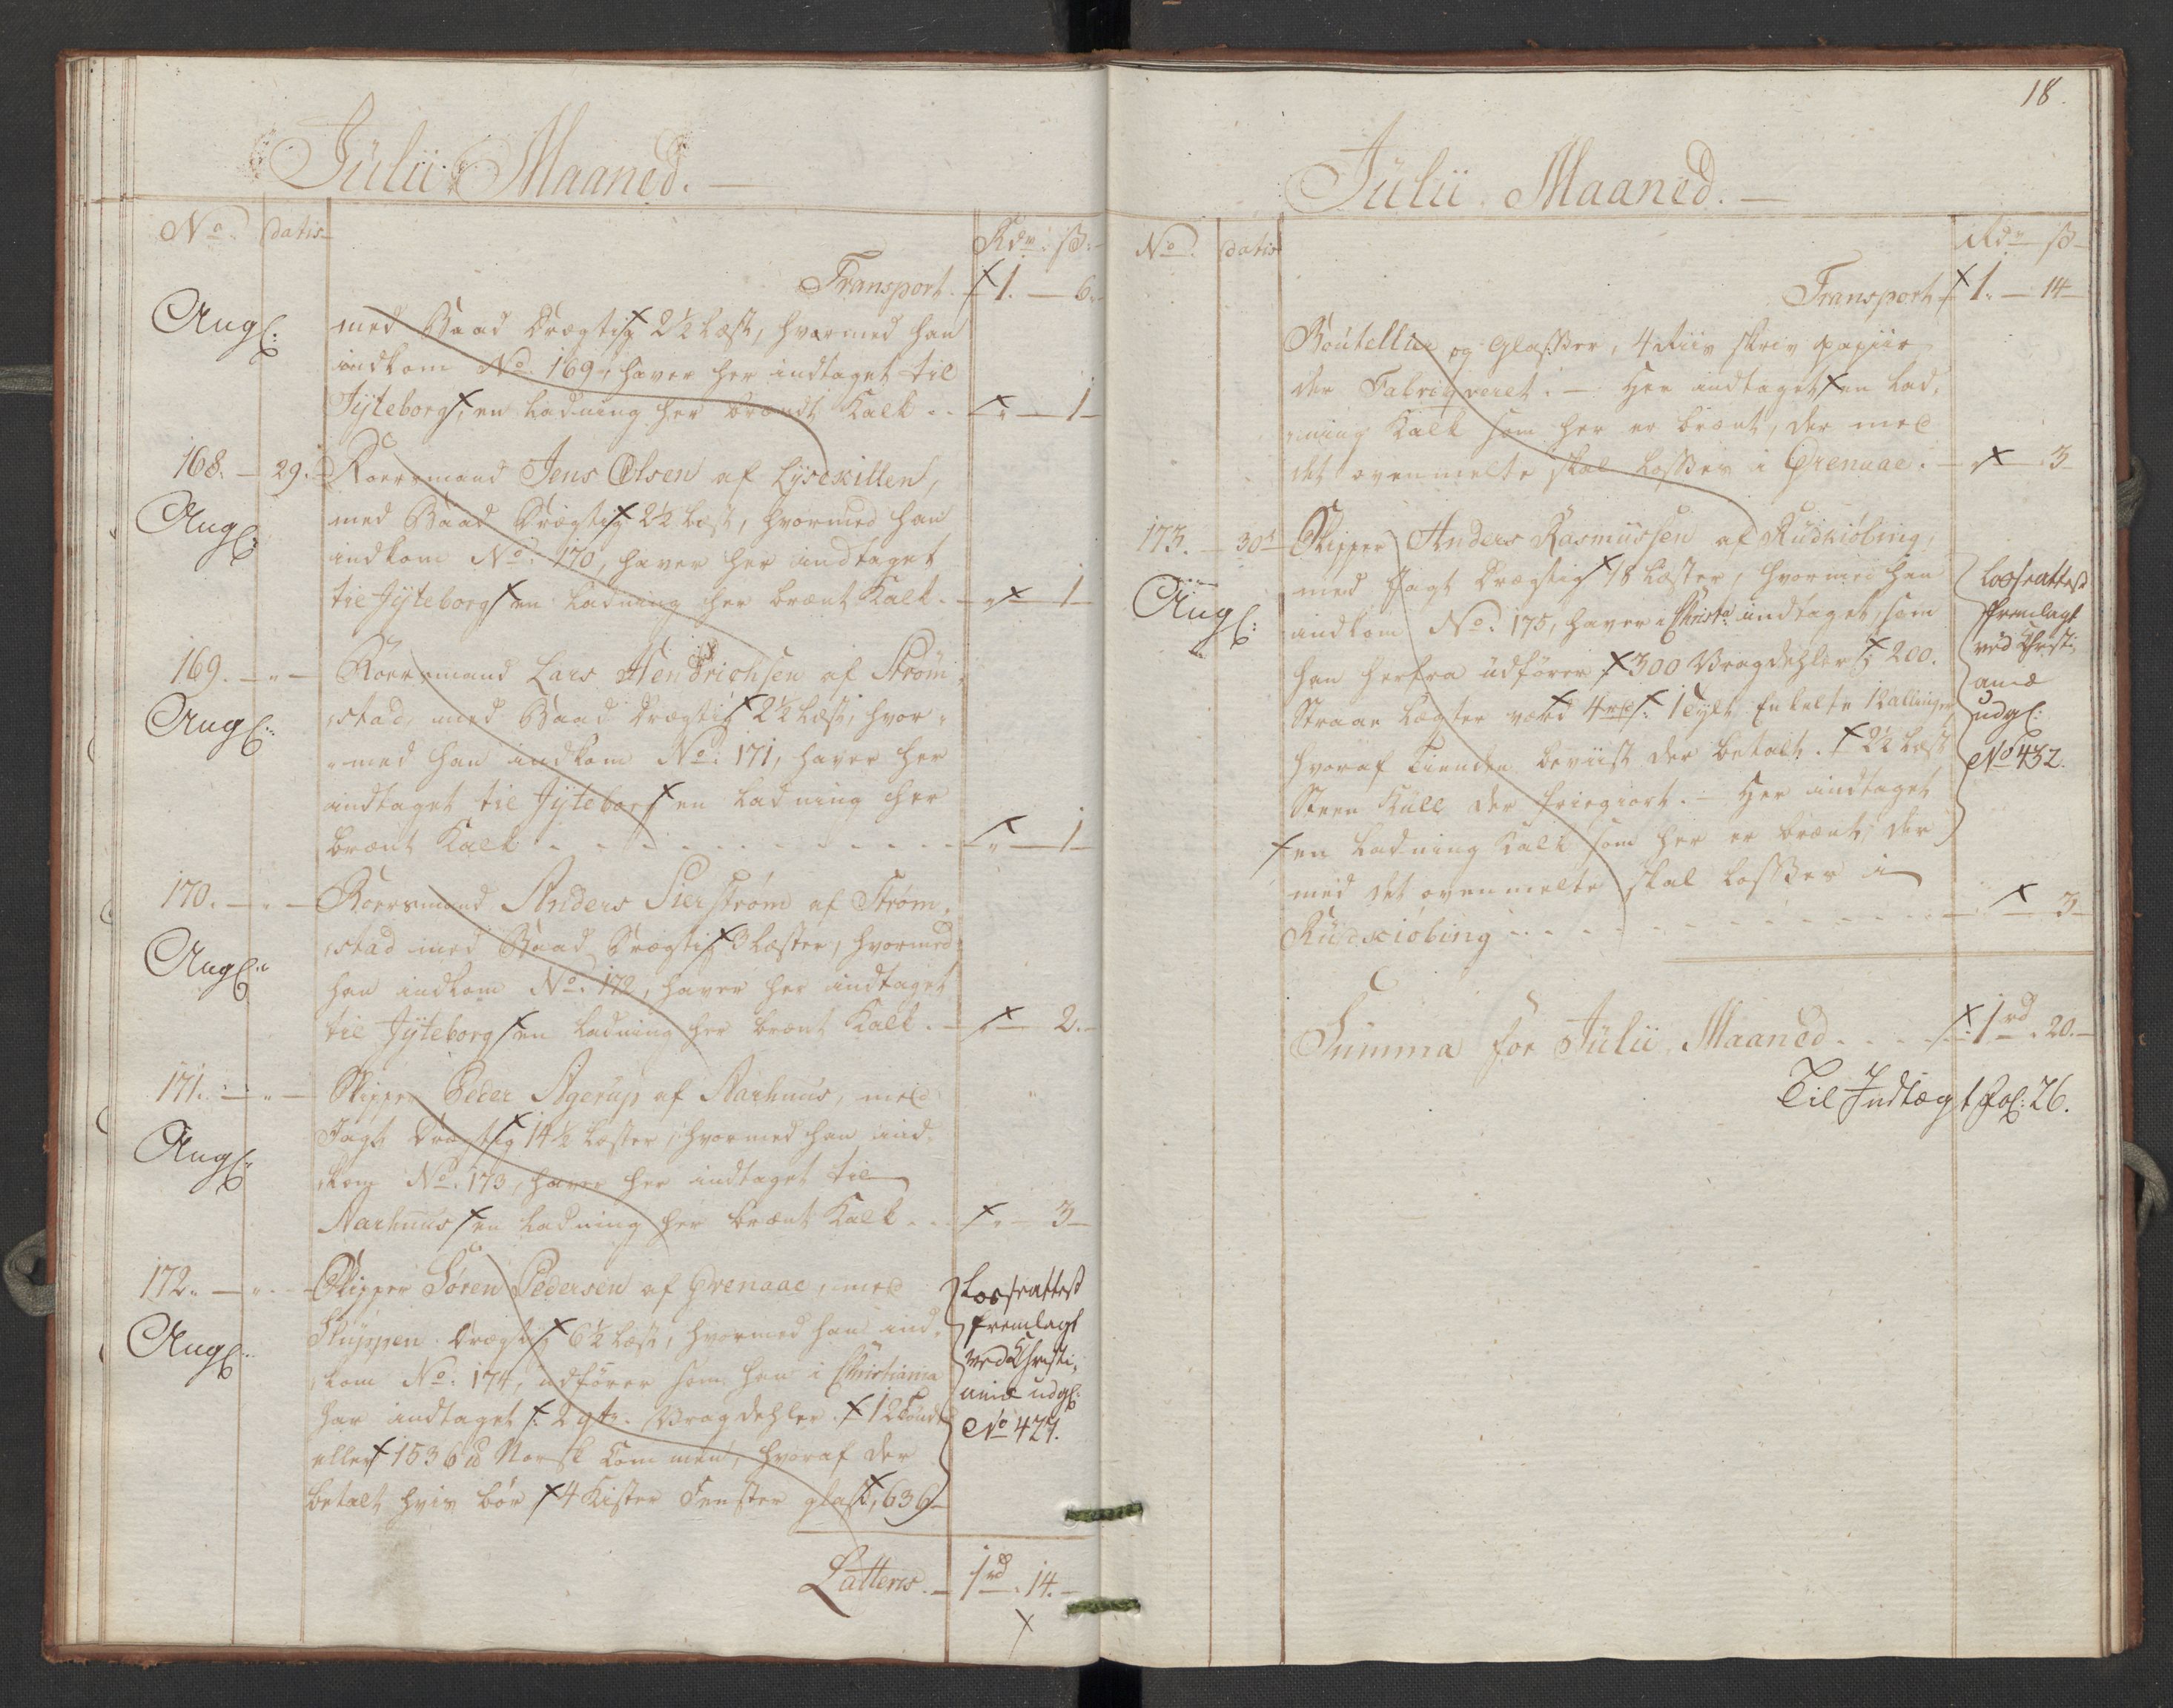 Julii Maaned.
No. datis
Rdr. ß.
Transport 1. 6.
Ang:
med Baad drægtig 2½ Læst, hvormed han
indkom No. 169, haver her indtaget til
Jÿteborg, en Ladning her brændt Kalk . . 1
168. 29. Roersmand Jens Olsen af Lysekillen,
Ang:
med Baad drægtig 2½ Læst, hvormed han
indkom No. 170, haver her indtaget
til Jÿteborg en Ladning her brænt Kalk. 1
169. " Roersmand Lars Hendrichsen af Strøm,
Ang:
stad, med Baad drægtig 2½ Læst, hvor,
med han indkom No. 171, haver her
indtaget til Jÿteborg en Ladning her
brænt Kalk . . . . 1
170. " Roersmand Anders Pierstrøm af Strøm,
stad med Baad drægtig 3 Læster, hvormed
Ang:
han indkom No. 172, haver her indtaget
til Jÿteborg en Ladning her brænt Kalk. 2.
171. " Skipper Peder Agerup af Aarhuus, med
Ang:
Jagt drægtig 14½ Læster, hvormed han ind,
kom No. 173, haver her indtaget til
Aarhuus en Ladning her brænt Kalk . . 3
172. " Skipper Søren Pedersen af Grenaae, med
Ang:
drægtig 6½ Læst, hvormed han ind,
kom No. 174, udfører som han i Christiania
har indtaget 2 Vragdehler. 12
eller 1536 Norsk Kommen, hvoraf der
betalt hvis bør 4 Kister Fenster glas, 636
Losseattest
fremlagt
ved Christi,
aniæ udg:
No 427.
Latteris. 1rd. 14.
18.
Julii Maaned.
No. datis
Rdr ß
Transport 1. 14
Boutellier og Glasser, 4 Riis skriv papiir
der Fabriqveret. Her indtaget en Lad,
ning Kalk som her er brænt, der med
det ovenmelte skal losses i Grenaae. 3
173. 30t Skipper Anders Rasmussen af Rudkiøbing,
Ang:
med Jagt drægtig 18 Læster, hvormed han
indkom No. 175, haver i Christa: indtaget, som
han herfra udfører 300 Vragdehler 200.
Straae Lægter værd 4 rd 1 Tylt Enkelte
hvoraf Tienden beviist der betalt. 2½ Læst
Steen Kull der friegiort. Her indtaget
en Ladning Kalk som her er brænt, der
med det ovenmelte skal losses i
Rudkiøbing . . . . 3
Losseattest
fremlagt
ved Christi,
aniæ
udg:
No 432.
Summa for Julii Maaned . . . . 1rd. 20.
Til Indtægt fol: 26.